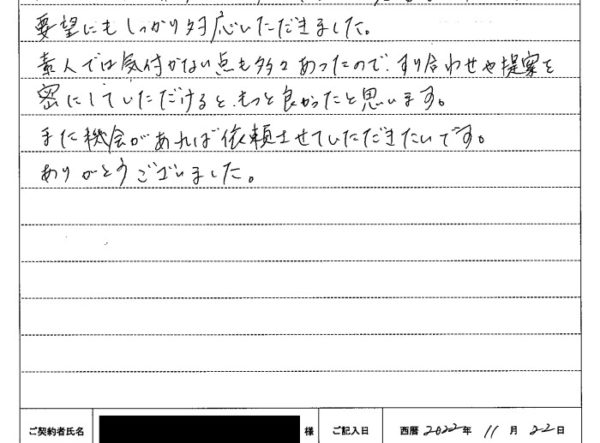 要望にもしっかり対応いただきました。
素人では気付かない点も多々あったので、すり合わせや提案を
密にしていただけると、もっと良かったと思います。
また機会があれば依頼させていただきたいです。
ありがとうございました。
ご契約者氏名 様 ご記入日 西暦 2022年 11月 22日